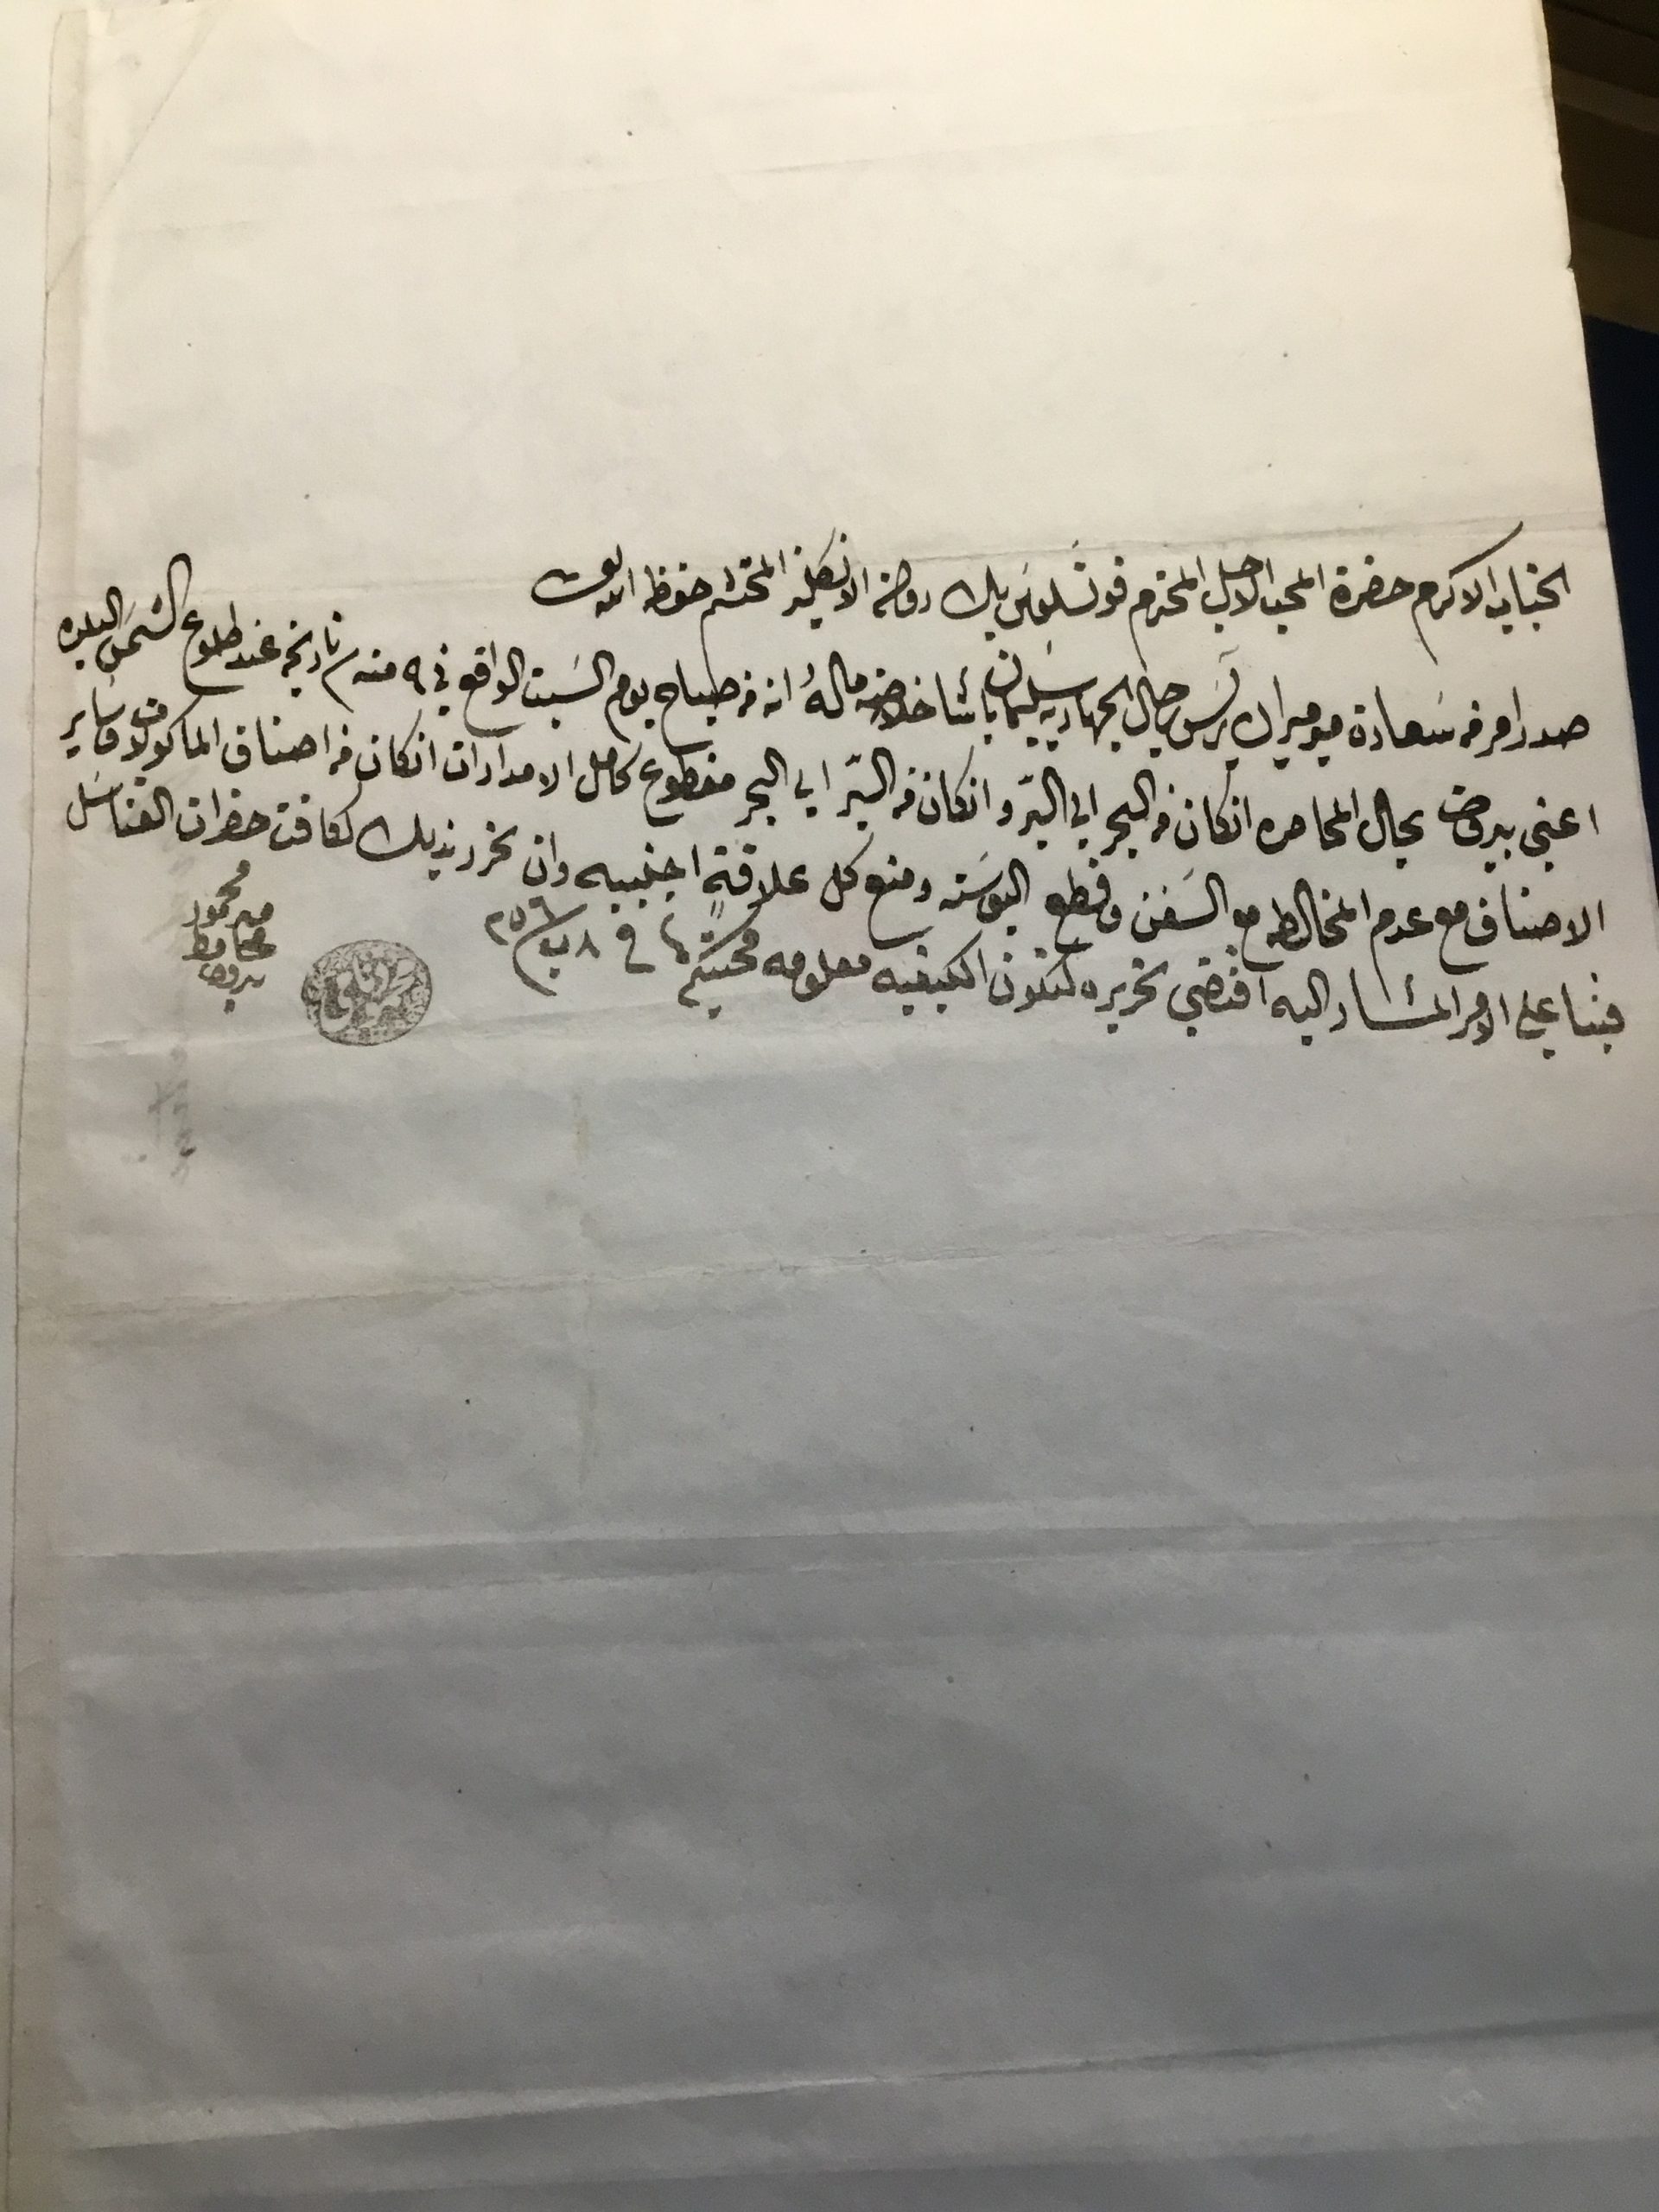 الجناب الاكرم حضرة المحب الاجل المحترم قونسلوس بك دولة الانكليز المحتشم حفظه الله تع
صدر امر من سعادة ميرميران رئيس رجال الجهاديه سليمان باشا خلاصة ماله انه من صباح يوم السبت الواقع في ٩ منه تاريخه عند طلوع الشمس البلده
اعني بيروت بحال المحاصره انكان من البحر الي البرّ وانكان من البرّ الي البحر مقطوع كامل الامدادات انكان من اصناف الماكولات وساير
الاصناف مع عدم المخالطه مع السفن وقطع البوسته ومنع كل علاقةٍ اجنبيه وان نحرر بذلك لكافت حضرات القناسل
فبنا علي الامر المشار اليه اقتضي تحريره لتكون الكيفيه معلومه محبتكم في ٨ ب ٢٥٦
محمود
محافظ
بيروت